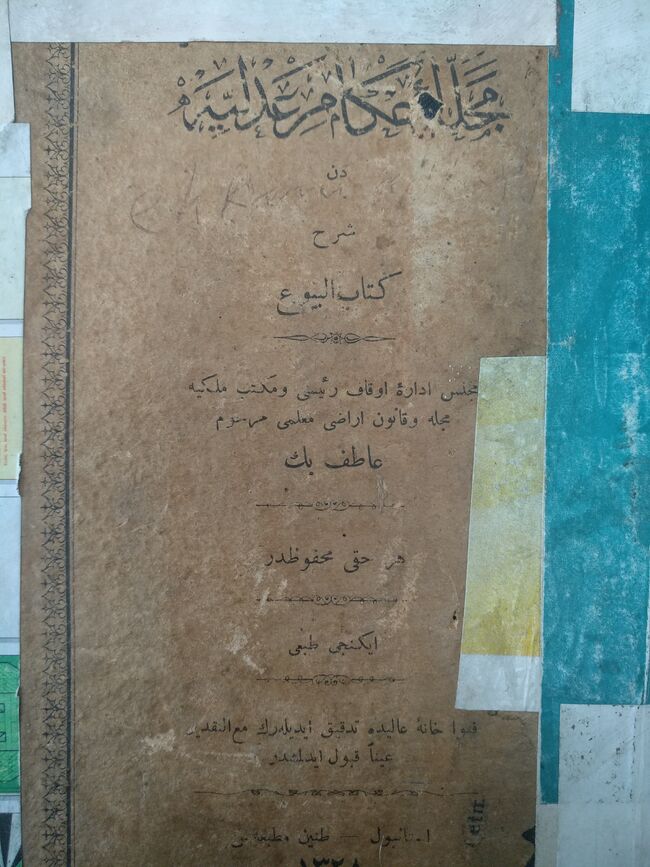 مجلّۀ احكام عدليه
دن
شرح
كتاب البيوع
مجلس ادارۀ اوقاف رئيسى ومكتب ملكيه
مجله وقانون اراضى معلمى مرحوم
عاطف بك
هر حقى محفوظدر
ايكنجى طبعى
فتوا خانۀ عاليده تدقيق ايديلەرك مع التقدير
عيناً قبول ايدلمشدر
استانبول — طنين مطبعه سى
١٣٢٨